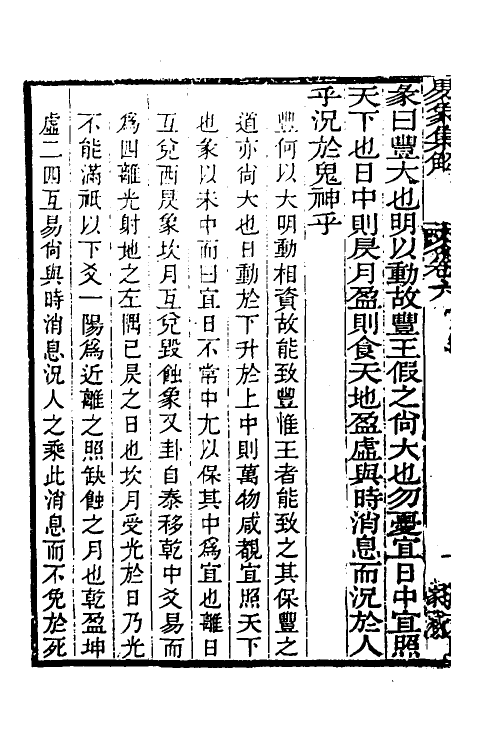 彖曰豐大也明以動故豐王假之尙大也勿憂宜日中宜照
天下也日中則昃月盈則食天地盈虛與時消息而況於人
乎況於鬼神乎
豐何以大明動相資故能致豐惟王者能致之其保豐之
道亦尙大也日動於下升於上中則萬物咸覩宜照天下
也象以未中而曰宜日不常中尢以保其中爲宜也離日
互兌西昃象坎月互兌毀蝕象又卦自泰移乾中爻易而
爲四離光射地之左隅已昃之日也坎月受光於日乃光
不能滿祇以下爻一陽爲近離之照缺蝕之月也乾盈坤
虛二四互易尙與時消息況人之乘此消息而不免於死
易象集解
卷六